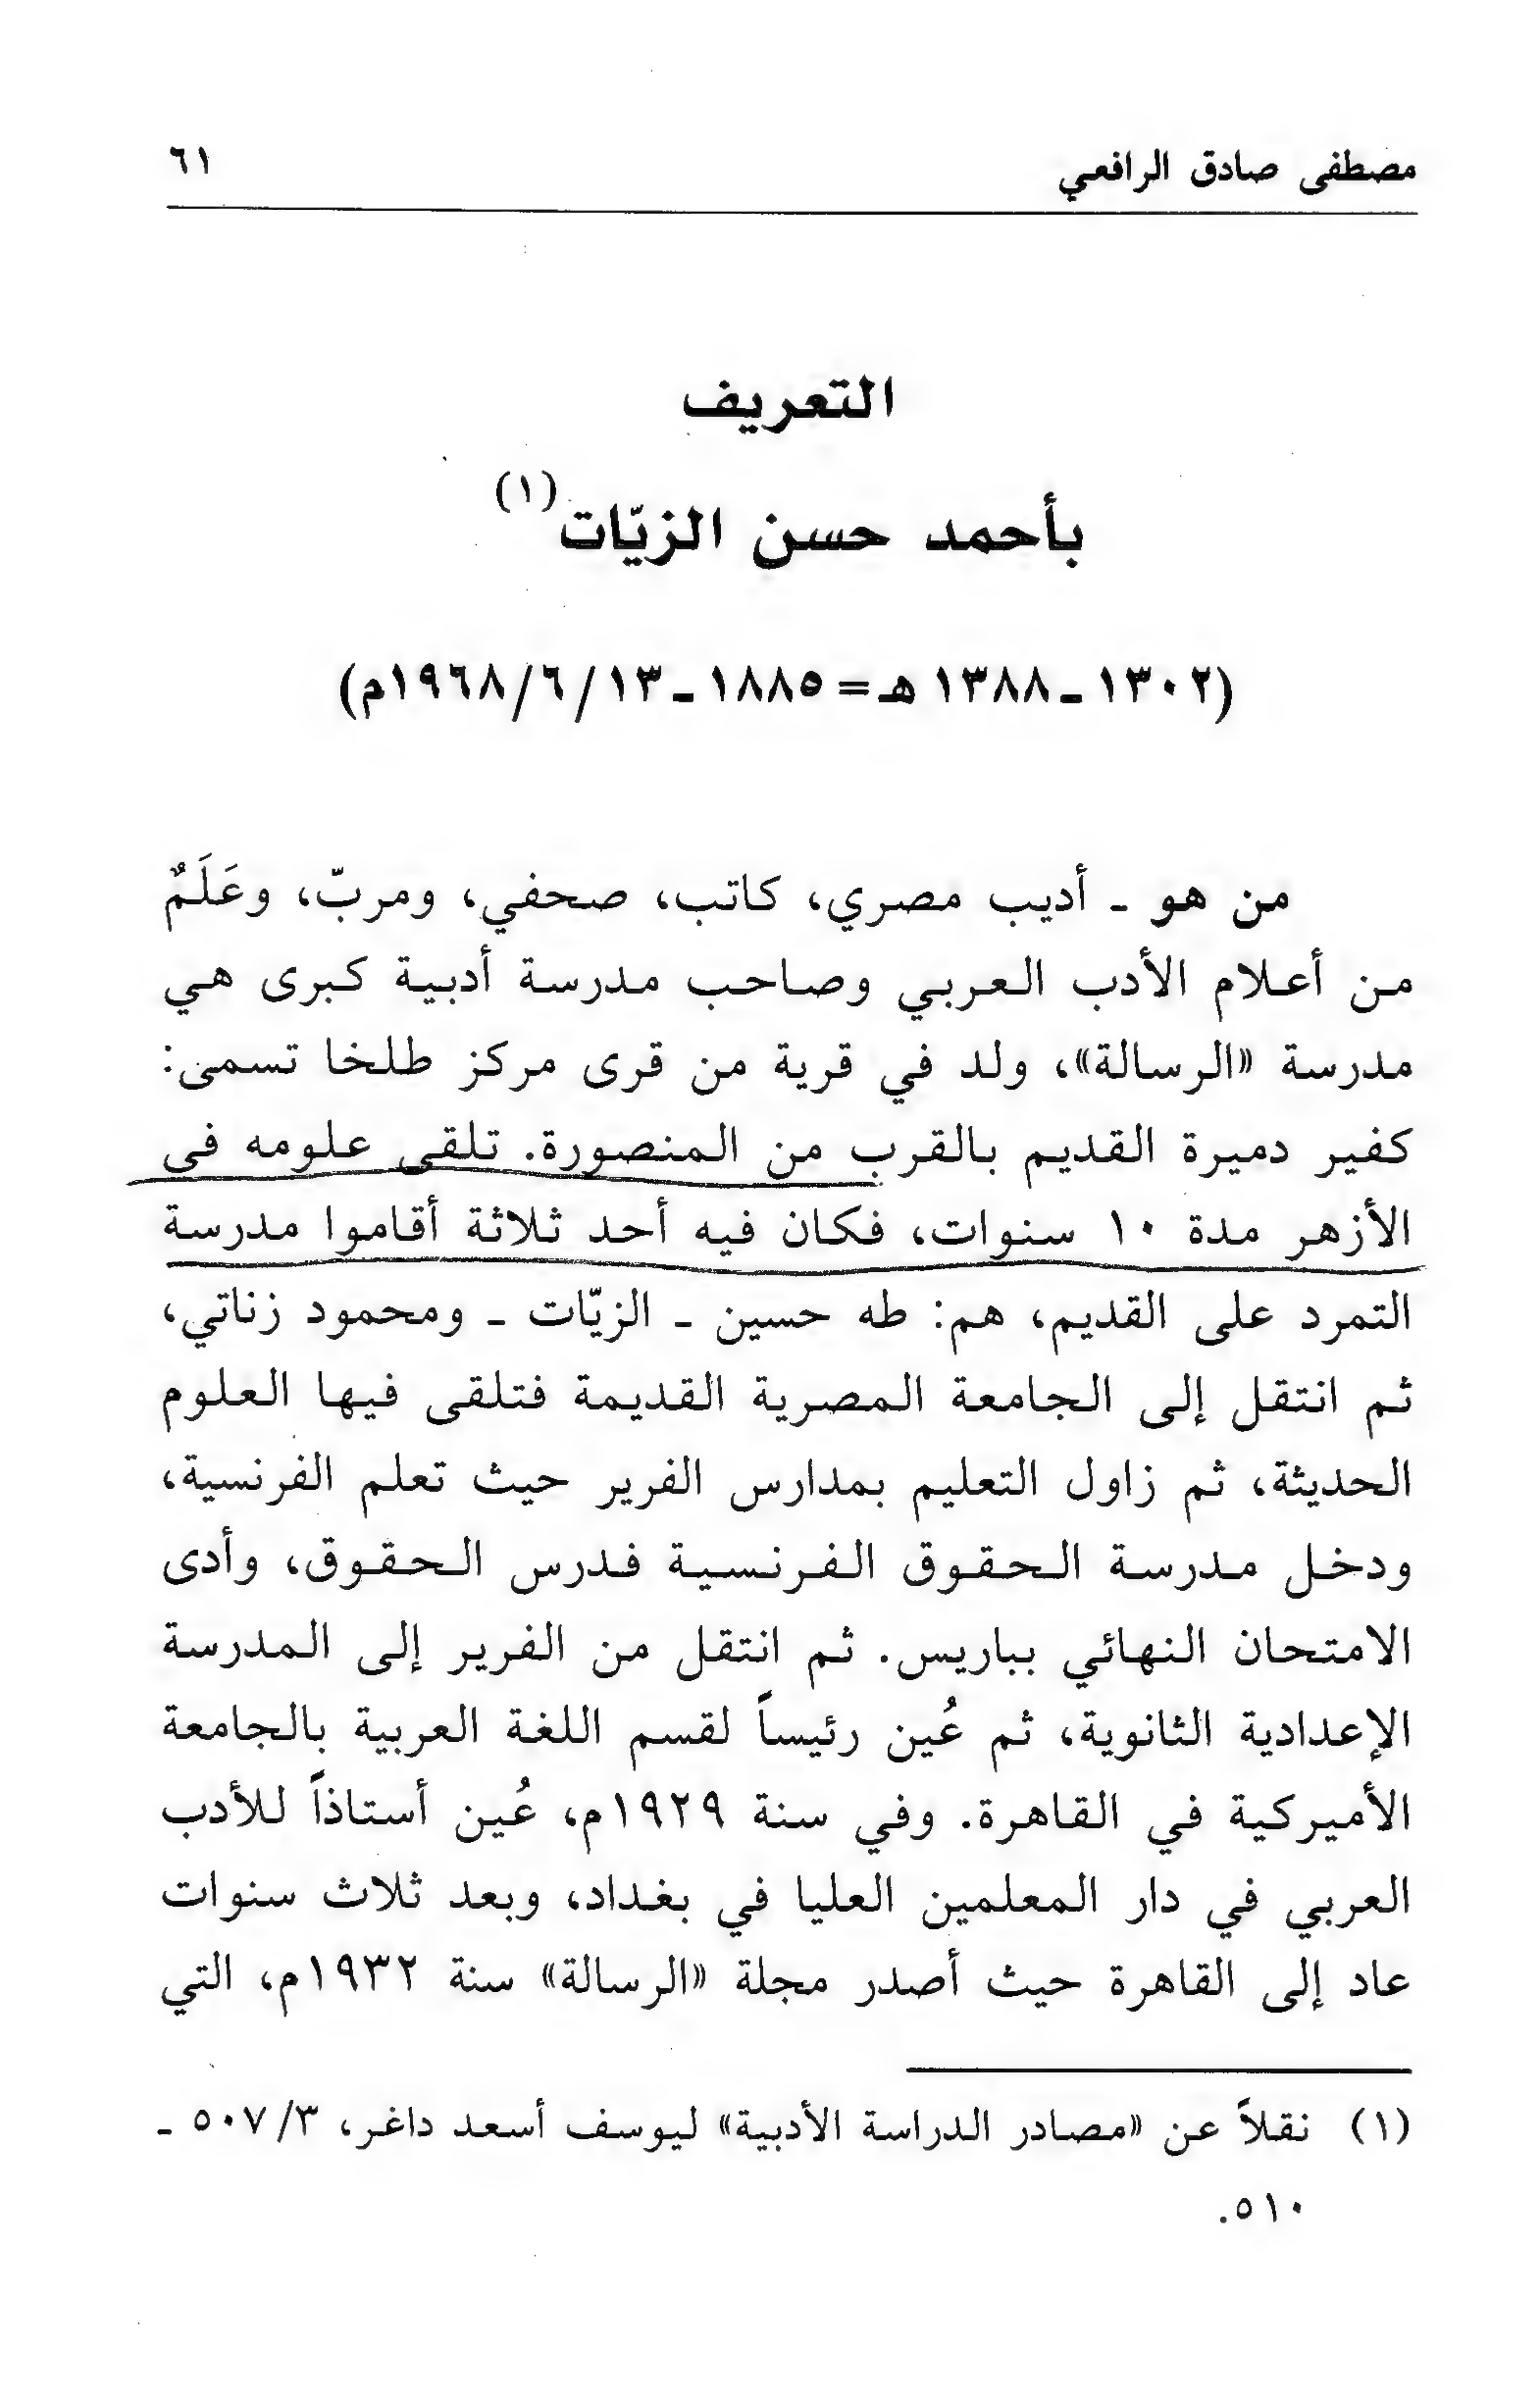 مصطفى صادق الرافعي ٦١
التعريف
بأحمد حسن الزيّات(١)
(١٣٠٢ـ١٣٨٨هـ=١٨٨٥ـ١٣/٦/١٩٦٨م)
من هو ـ أديب مصري، كاتب، صحفي، ومربّ، وعَلَمٌ
من أعلام الأدب العربي وصاحب مدرسة أدبية كبرى هي
مدرسة «الرسالة»، ولد في قرية من قرى مركز طلخا تسمى:
كفير دميرة القديم بالقرب من المنصورة. تلقى علومه في
الأزهر مدة ١٠ سنوات، فكان فيه أحد ثلاثة أقاموا مدرسة
التمرد على القديم، هم: طه حسين ـ الزيّات ـ ومحمود زناتي،
ثم انتقل إلى الجامعة المصرية القديمة فتلقى فيها العلوم
الحديثة، ثم زاول التعليم بمدارس الفرير حيث تعلم الفرنسية،
ودخل مدرسة الحقوق الفرنسية فدرس الحقوق، وأدى
الامتحان النهائي بباريس. ثم انتقل من الفرير إلى المدرسة
الإعدادية الثانوية، ثم عُين رئيساً لقسم اللغة العربية بالجامعة
الأميركية في القاهرة. وفي سنة ١٩٢٩م، عُين أستاذاً للأدب
العربي في دار المعلمين العليا في بغداد، وبعد ثلاث سنوات
عاد إلى القاهرة حيث أصدر مجلة «الرسالة» سنة ١٩٣٢م، التي
(١) نقلاً عن «مصادر الدراسة الأدبية» ليوسف أسعد داغر، ٣/ ٥٠٧ ـ
٥١٠.